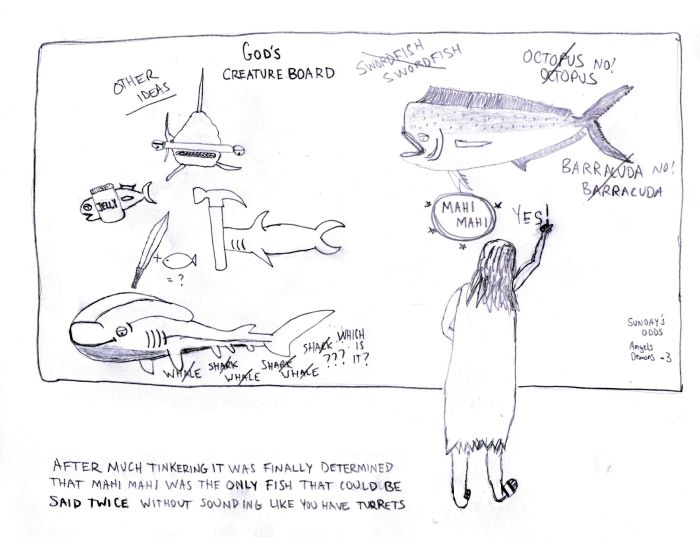 GOD'S
CREATURE BOARD
OTHER
IDEAS
SWORDFISH
SWORDFISH
OCTOPUS NO!
OCTOPUS
BARRACUDA NO!
BARRACUDA
MAHI
MAHI
YES!
JELLY
+
= ?
WHALE SHARK WHALE SHARK WHALE SHARK ???
WHICH
IS
IT?
SUNDAY'S
ODDS
Angels
Demons -3
AFTER MUCH TINKERING IT WAS FINALLY DETERMINED
THAT MAHI MAHI WAS THE ONLY FISH THAT COULD BE
SAID TWICE WITHOUT SOUNDING LIKE YOU HAVE TURRETS